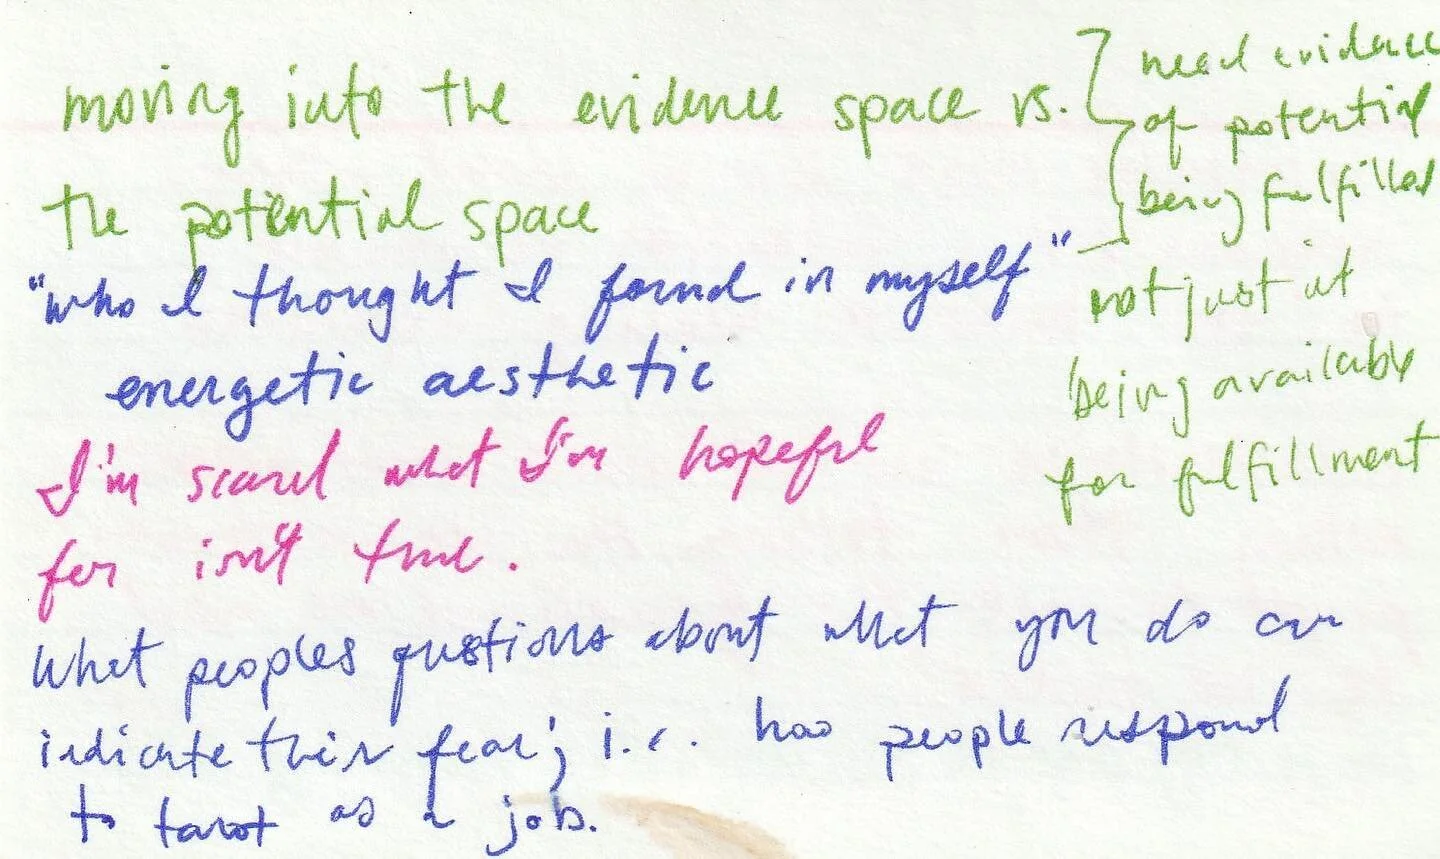 moving into the evidence space vs.
the potential space
need evidence
of potential
being fulfilled
not just it
being available
for fulfillment
"who I thought I found in myself"
energetic aesthetic
I'm scared what I'm hopeful
for isn't true.
What peoples questions about what you do can
indicate their fear; i.e. how people respond
to tarot as a job.